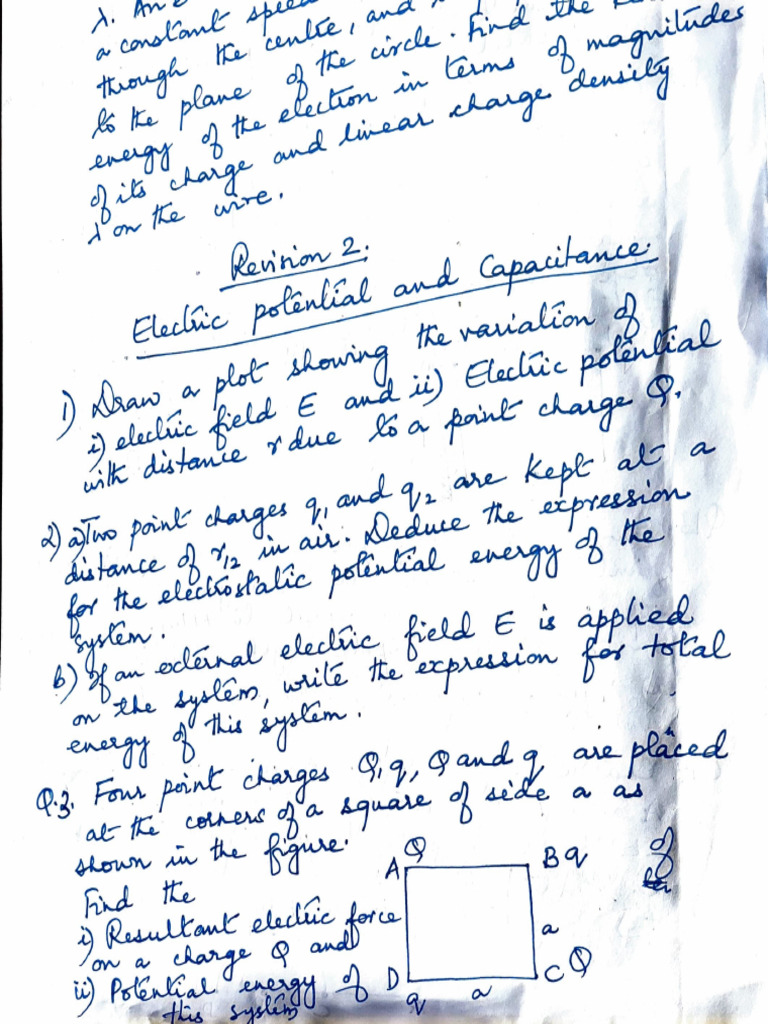 λ. An
a constant speed
through the centre, and
to the plane of the circle. Find the
energy of the electron in terms of magnitudes
of its charge and linear charge density
λ on the wire.
Revision 2.
Electric potential and Capacitance.
1) Draw a plot showing the variation of
i) electric field E and ii) Electric potential
with distance r due to a point charge Q.
2) a) Two point charges q₁ and q₂ are kept at a
distance of r₁₂ in air. Deduce the expression
for the electrostatic potential energy of the
system.
b) If an external electric field E is applied
on the system, write the expression for total
energy of this system.
Q.3. Four point charges Q, q, Q and q are placed
at the corners of a square of side a as
shown in the figure.
Find the
i) Resultant electric force
on a charge Q and
ii) Potential energy of
this system
of
Q
A
B q
a
D
C Q
q
a